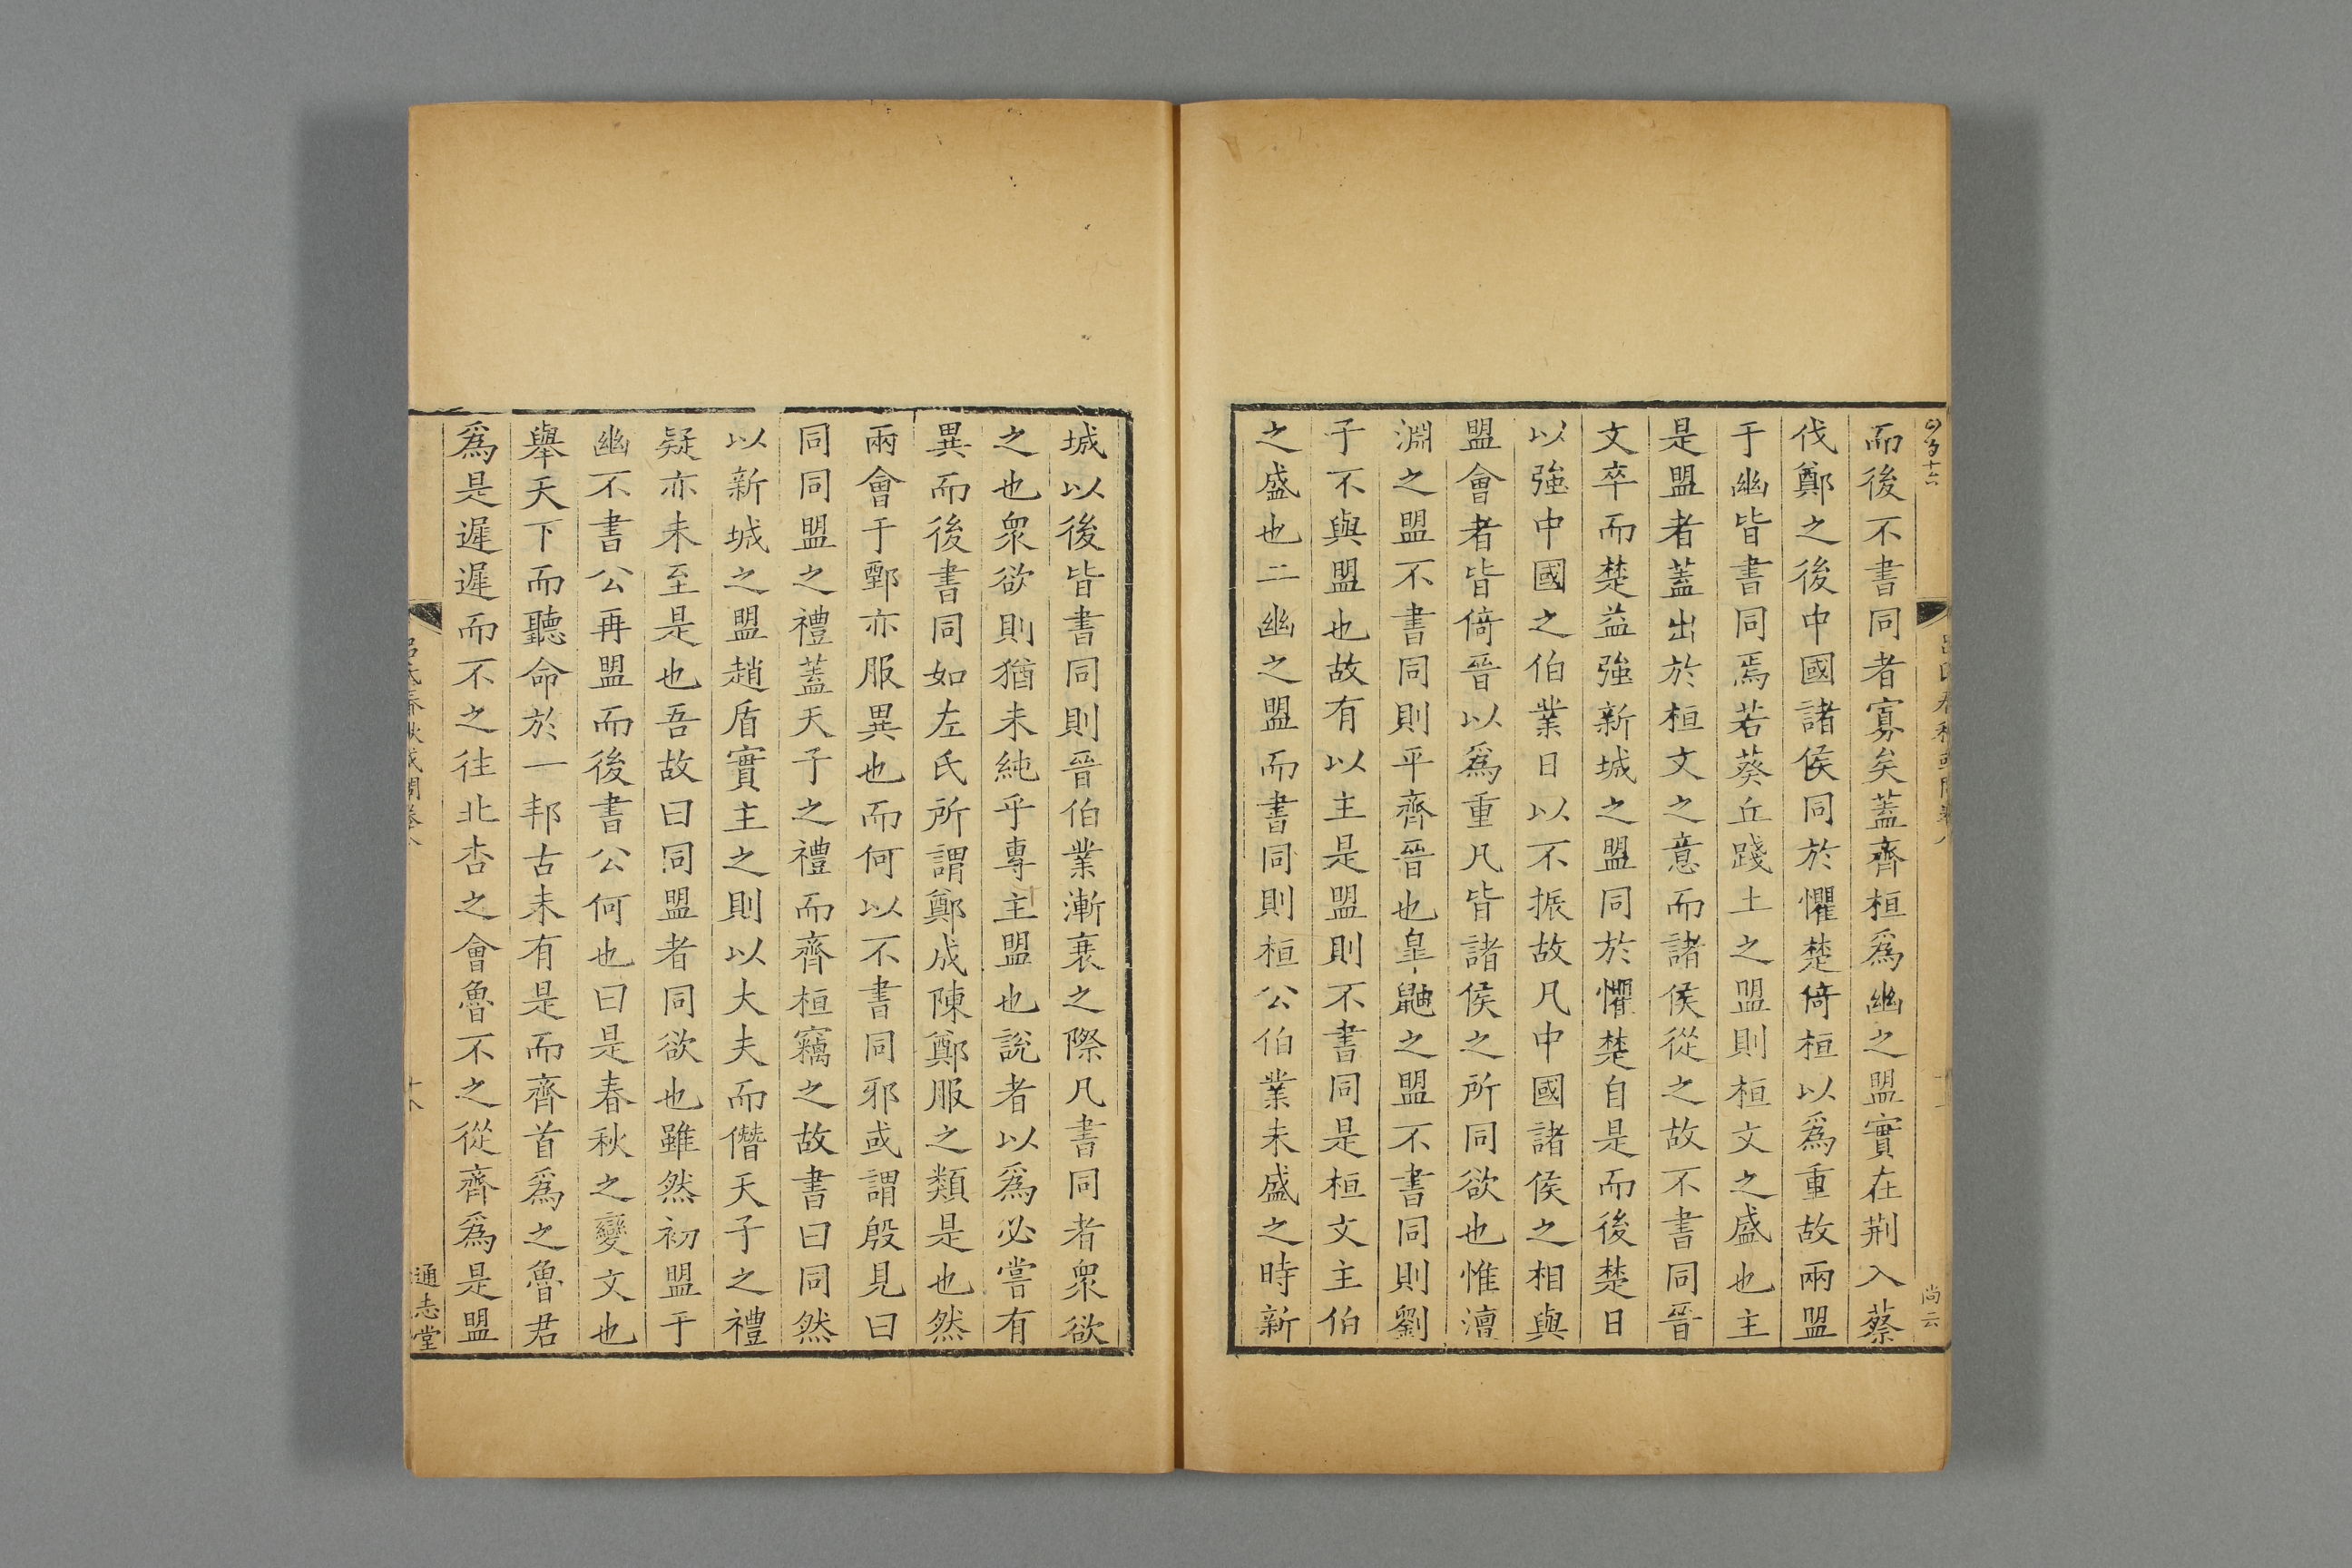 而後不書同者寡矣蓋齊桓爲幽之盟實在荆入蔡
伐鄭之後中國諸侯同於懼楚倚桓以爲重故兩盟
于幽皆書同焉若葵丘踐土之盟則桓文之盛也主
是盟者蓋出於桓文之意而諸侯從之故不書同晉
文卒而楚益強新城之盟同於懼楚自是而後楚日
以強中國之伯業日以不振故凡中國諸侯之相與
盟會者皆倚晉以爲重凡皆諸侯之所同欲也惟澶
淵之盟不書同則平齊晉也臯鼬之盟不書同則劉
子不與盟也故有以主是盟則不書同是桓文主伯
之盛也二幽之盟而書同則桓公伯業未盛之時新
城以後皆書同則晉伯業漸衰之際凡書同者衆欲
之也衆欲則猶未純乎專主盟也說者以爲必嘗有
異而後書同如左氏所謂鄭成陳鄭服之類是也然
兩會于鄄亦服異也而何以不書同邪或謂殷見曰
同同盟之禮蓋天子之禮而齊桓竊之故書曰同然
以新城之盟趙盾實主之則以大夫而僭天子之禮
疑亦未至是也吾故曰同盟者同欲也雖然初盟于
幽不書公再盟而後書公何也曰是春秋之變文也
舉天下而聽命於一邦古未有是而齊首爲之魯君
爲是遲遲而不之往北杏之會魯不之從齊爲是盟
通志堂